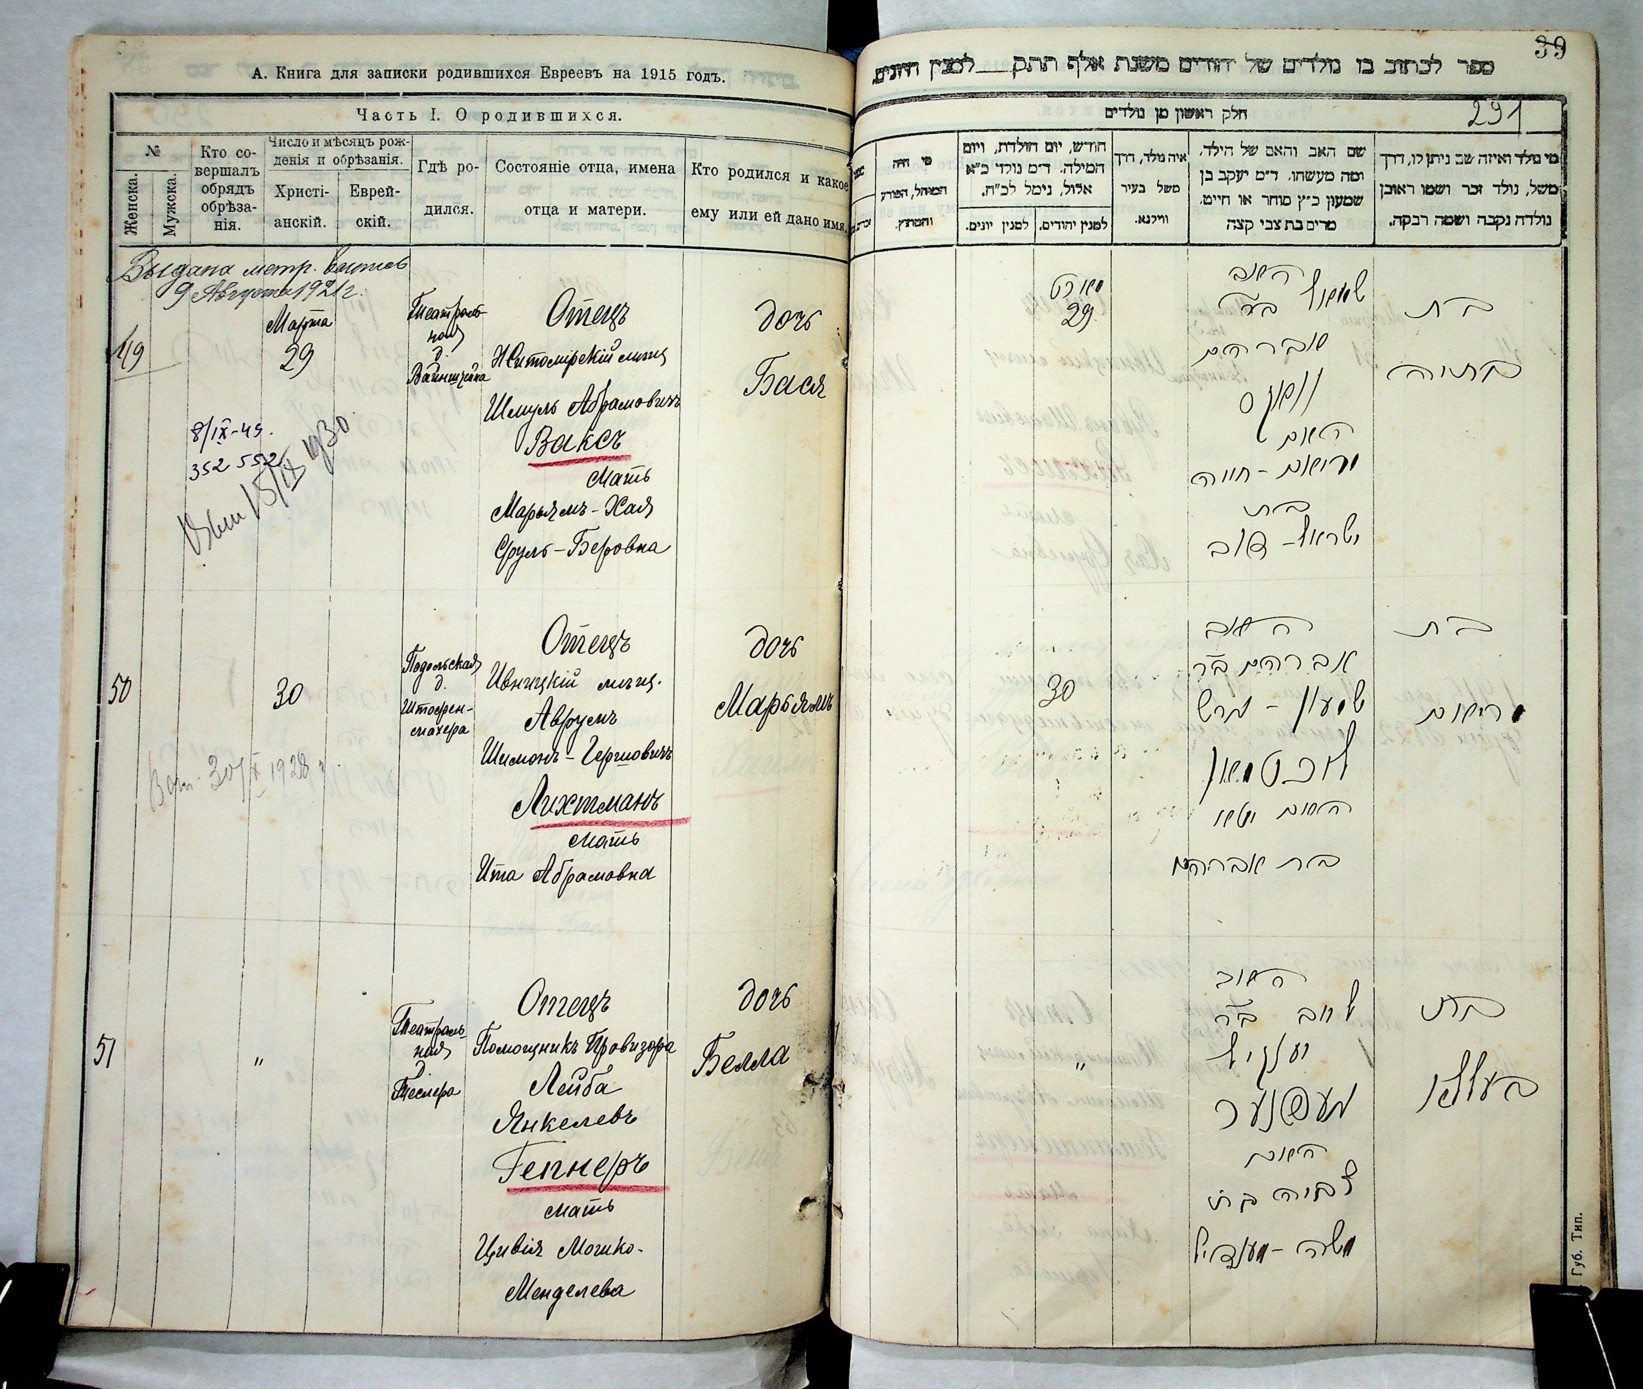 А. Книга для записки родившихся Евреевъ на 1915 годъ.
Часть I. О родившихся.
№
Женска.
Мужска.
Кто со-
вершалъ
обрядъ
обрѣза-
нія.
Число и мѣсяцъ рож-
денія и обрѣзанія.
Христі-
анскій.
Еврей-
скій.
Гдѣ ро-
дился.
Состояніе отца, имена
отца и матери.
Кто родился и какое
ему или ей дано имя.
Выдана метр. выпись
9 Августа 1921 г.
49
Марта
29
Театраль-
ная
д.
Вайнштейна
Отецъ
Житомірскій мѣщ.
Шмуль Абрамовичъ
Ваксъ
Мать
Марьямъ-Хая
Сруль-Беровна
дочь
Бася
8/IX-49.
352 552
15/IX 1930
50
30
Подольская
д.
Штофен-
махера
Отецъ
Ивницкій мѣщ.
Аврумъ
Шимонъ-Гершовичъ
Лихтманъ
мать
Ита Абрамовна
дочь
Марьямъ
30/X 1928 г.
51
"
Театраль-
ная
д.
Теслера
Отецъ
Помощникъ Провизора
Лейба
Янкелевъ
Гепнеръ
мать
Цивія Мошко-
Менделева
дочь
Белла
39
ספר לכתוב בו נולדים של יהודים משנת אלף תתק למנין היונים.
חלק ראשון מן נולדים
291
מי היה
המוהל, הפורע
והמוצץ.
חודש, יום הולדת, ויום
המילה. ד"מ נולד כ"א
אלול, נימל לכ"ח.
למנין יונים.
למנין יהודים.
איה נולד, דרך
משל בעיר
ווילנא.
שם האב והאם של הילד,
ומה מעשהו. ד"מ יעקב בן
שמעון כ"ץ סוחר או חייט.
מרים בת צבי קצה
מי נולד ואיזה שם ניתן לו, דרך
משל, נולד זכר ושמו ראובן
נולדה נקבה ושמה רבקה.
מארט
29
האב
שמואל בר
אברהם
וואקס
האם
מרים-חיה
בת
ישראל-דוב
בת
בתיה
30
האב
אברהם בר
שמעון-הרש
ליכטמאן
האם יטא
בת אברהם
בת
מרים
"
האב
ליב בר
יעקל
העפנער
האם
צביה בת
משה-מענדיל
בת
בעללא
Губ. Тип.